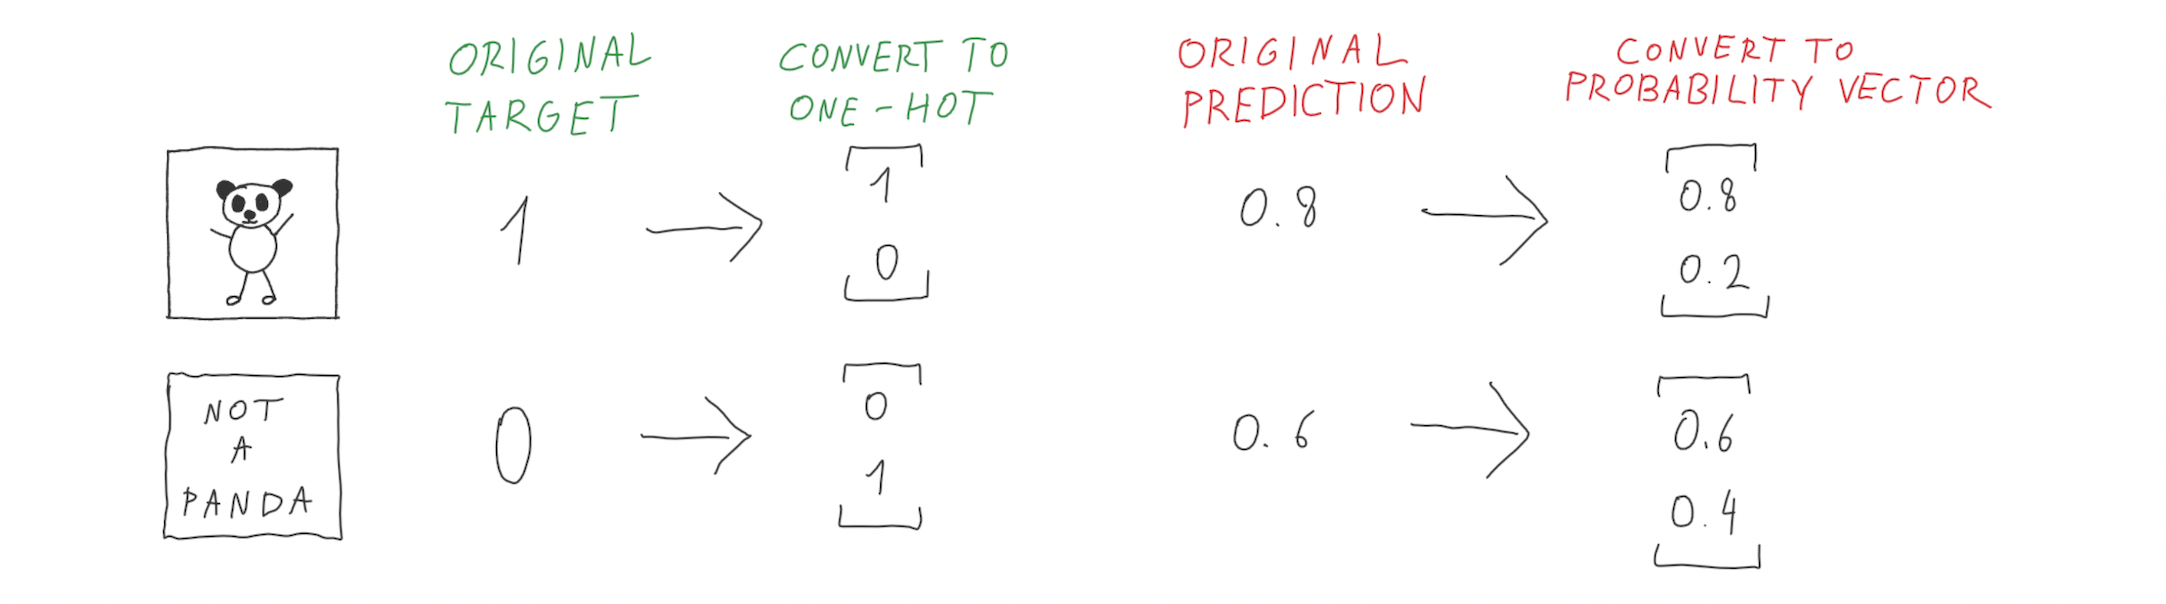 ORIGINAL
TARGET
CONVERT TO
ONE-HOT
ORIGINAL
PREDICTION
CONVERT TO
PROBABILITY VECTOR
1
1
0
0.8
0.8
0.2
NOT
A
PANDA
0
0
1
0.6
0.6
0.4